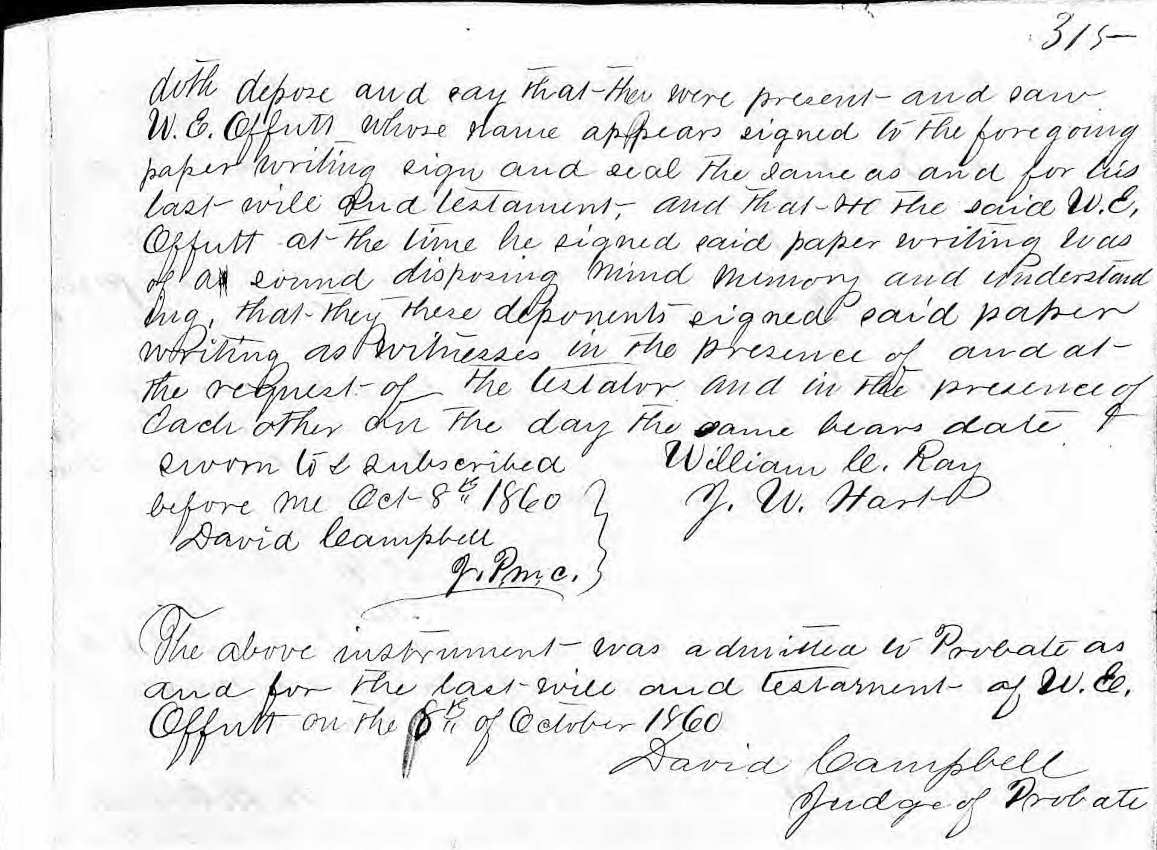 315
doth depose and say that they were present and saw
W. E. Offutt whose name appears signed to the foregoing
paper writing sign and seal the same as and for his
last will and testament, and that he the said W. E.
Offutt at the time he signed said paper writing was
of a sound disposing mind memory and understand
ing, that they these deponents signed said paper
writing as witnesses in the presence of and at
the request of the testator and in the presence of
each other on the day the same bears date
sworn to & subscribed William C. Ray
before me Oct 8th 1860 J. W. Hart
David Campbell
J. P. M. C.
The above instrument was admitted to Probate as
and for the last will and testament of W. E.
Offutt on the 8th of October 1860
David Campbell
Judge of Probate